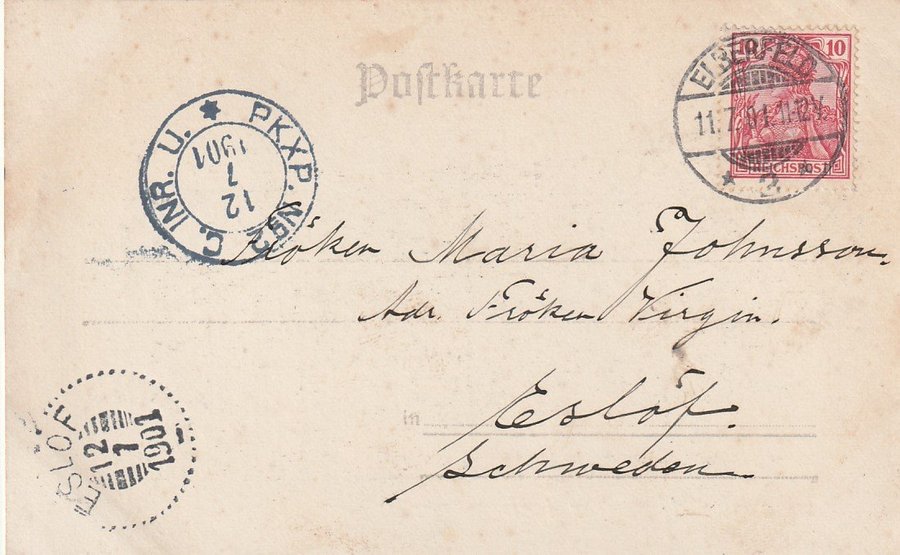 Postkarte
10
REICHSPOST
ELBERFELD
11.7.01.11-12½
* 2 *
PKXP. NR2
C. INR. U. *
12
7
1901
Fröken Maria Johnsson.
Adr. Fröken Virgin.
in Eslöf.
Schweden
ESLOF
12
7
1901